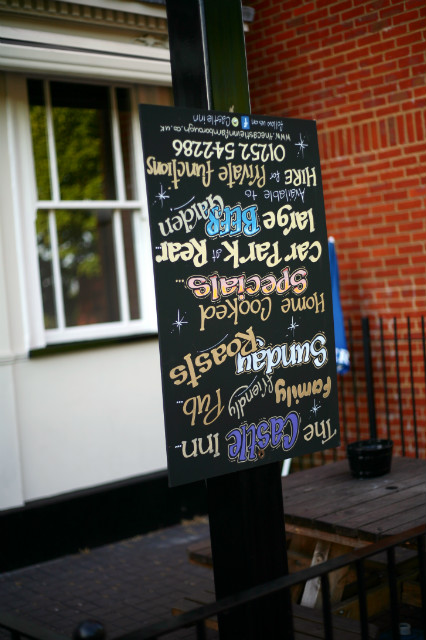 The Castle Inn...
Family friendly Pub...
Sunday Roasts...
Home Cooked
Specials...
Car Park at Rear...
large BEER Garden
Available to
HIRE for Private functions
01252 542286
www.thecastleinnfarnborough.co.uk
follow us on Castle Inn